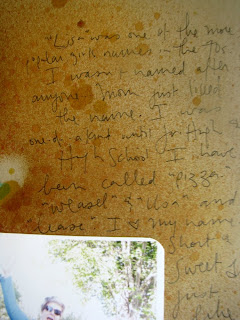 "Lisa" was one of the more
popular girls names in the 70s.
I wasn't named after
anyone. Mom just liked
the name. I was
one of a kind until Jr. High
High School. I have
been called "pizza"
"weasel" & "Lisa" and
"Lease" I ♥ my name
Short &
Sweet &
just